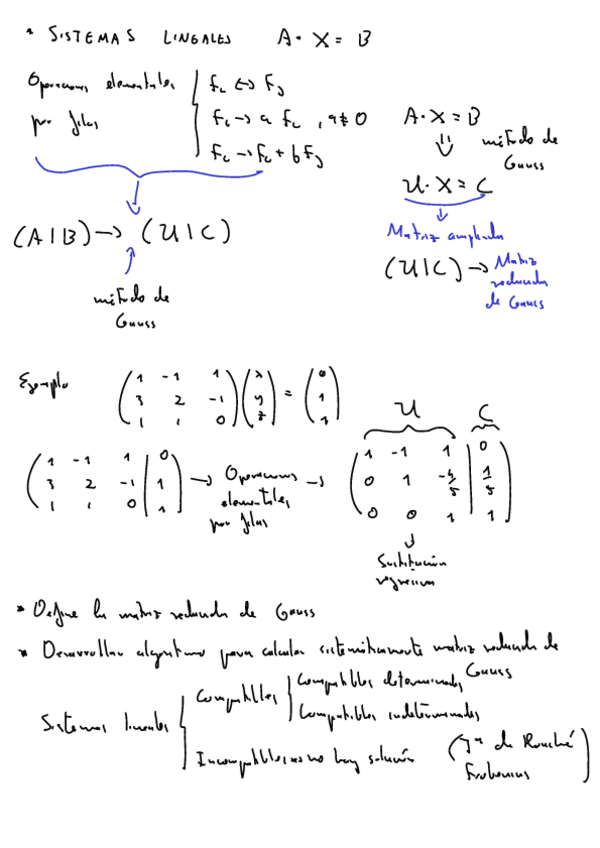 * SISTEMAS LINEALES A · X = B
Operaciones elementales por filas
fi ↔ fj
fi → a fi , a ≠ 0
fi → fi + b fj
(A | B) → (U | C)
método de Gauss
A · X = B
método de Gauss
U · X = C
Matriz ampliada
(U | C) → Matriz reducida de Gauss
Ejemplo
( 1 -1 1 ) ( x ) = ( 0 )
( 3 2 -1 ) ( y ) ( 1 )
( 1 1 0 ) ( z ) ( 1 )
U C
( 1 -1 1 | 0 ) → Operaciones → ( 1 -1 1 | 0 )
( 3 2 -1 | 1 ) elementales ( 0 1 -4/5 | 1/5 )
( 1 1 0 | 1 ) por filas ( 0 0 1 | 1 )
Sustitución
regresiva
* Define la matriz reducida de Gauss
* Desarrollar algoritmo para calcular sistemáticamente matriz reducida de Gauss
Sistemas lineales
Compatibles
Compatibles determinados
Compatibles indeterminados
Incompatibles no hay solución
(Tª de Rouché
Frobenius)